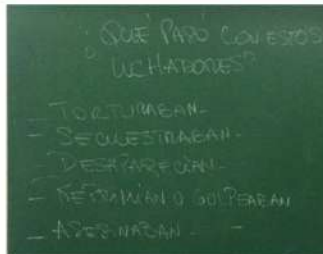 ¿QUÉ PASÓ CON ESTOS
LUCHADORES?
- TORTURABAN-
- SECUESTRABAN-
- DESAPARECÍAN-
- REPRIMÍAN O GOLPEABAN
- ASESINABAN - -